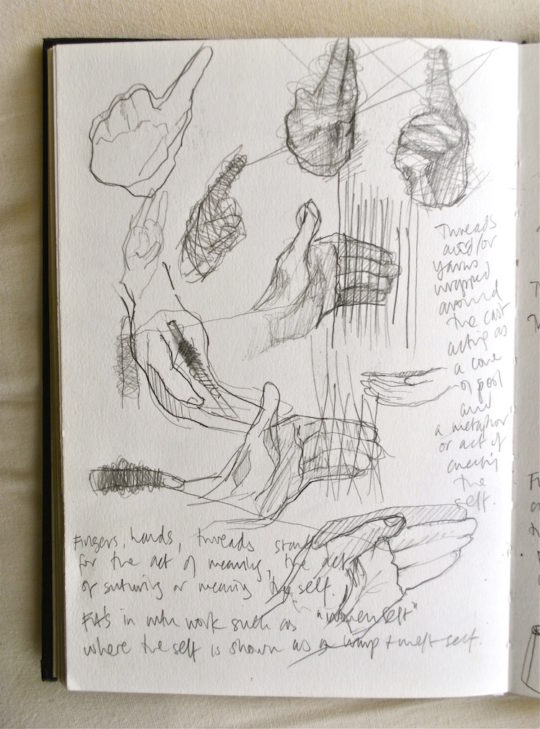 Threads
and/or
yarns,
wrapped
around
the cast
acting as
a cone
or pool
and
a metaphor
or act of
creating
the
self.
Fingers, hands, threads stand
for the act of weaving, the act
of suturing or weaving the self.
Fits in with work such as "woven self"
where the self is shown as a warp + weft self.